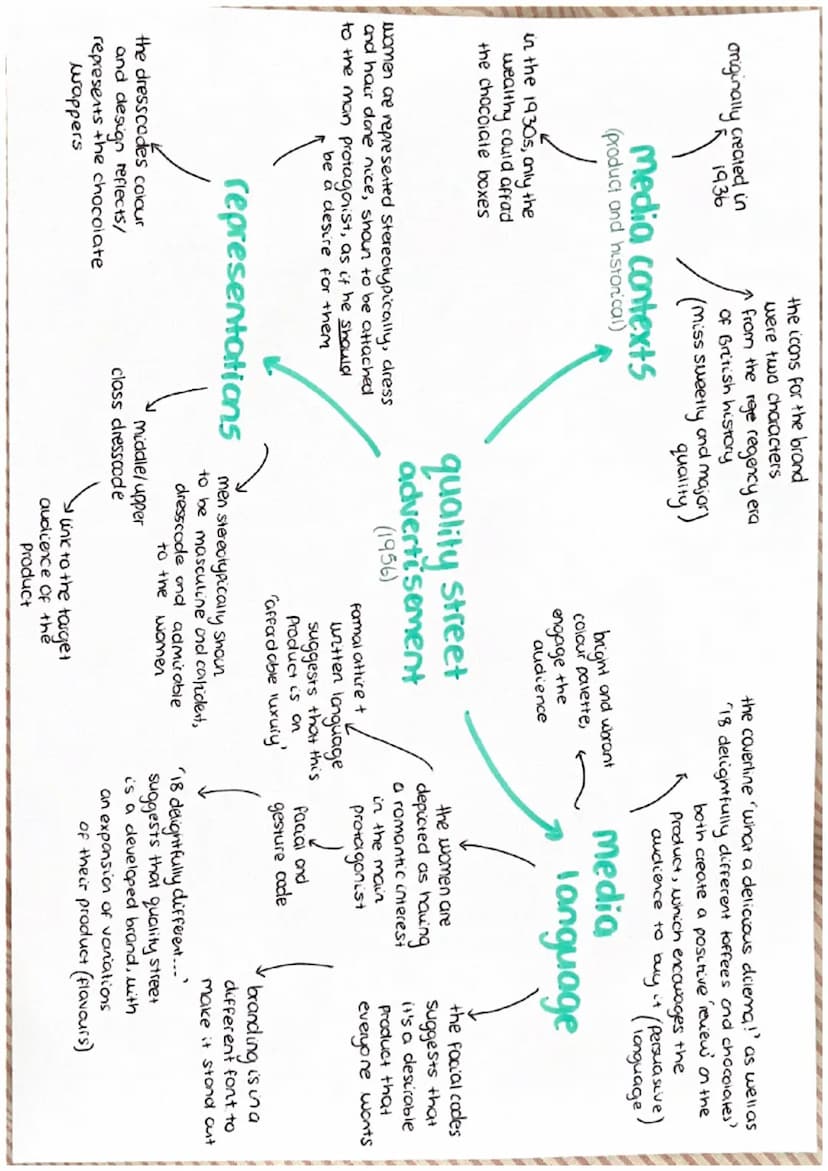 quality street
advertisement
(1956)
media contexts
(product and historical)
originally created in
1936
in the 1930s, only the
wealthy could afford
the chocolate boxes
the icons for the brand
were two characters
from the rege regency era
of British history
(miss sweetly and major
quality)
media
language
the coverline 'what a delicious dilema!' as well as
'18 delightfully different toffees and chocolates'
both create a positive 'review' on the
product, which encourages the
audience to buy it (persuasive
language)
bright and vibrant
colour palette,
engage the
audience
the women are
depicted as having
a romantic interest
in the main
protagonist
formal attire +
written language
suggests that this
product is an
'affordable luxury'
facial and
gesture code
'18 delightfully different...'
suggests that quality street
is a developed brand, with
an expansion of variations
of their product (flavours)
the facial codes
suggests that
it's a desirable
product that
everyone wants
branding is in a
different font to
make it stand out
representations
women are represented stereotypically, dress
and hair done nice, shown to be attached
to the main protagonist, as if he should
be a desire for them
the dresscodes colour
and design reflects/
represents the chocolate
wrappers
middle/upper
class dresscode
link to the target
audience of the
product
men stereotypically shown
to be masculine and confident,
dresscode and admirable
to the women